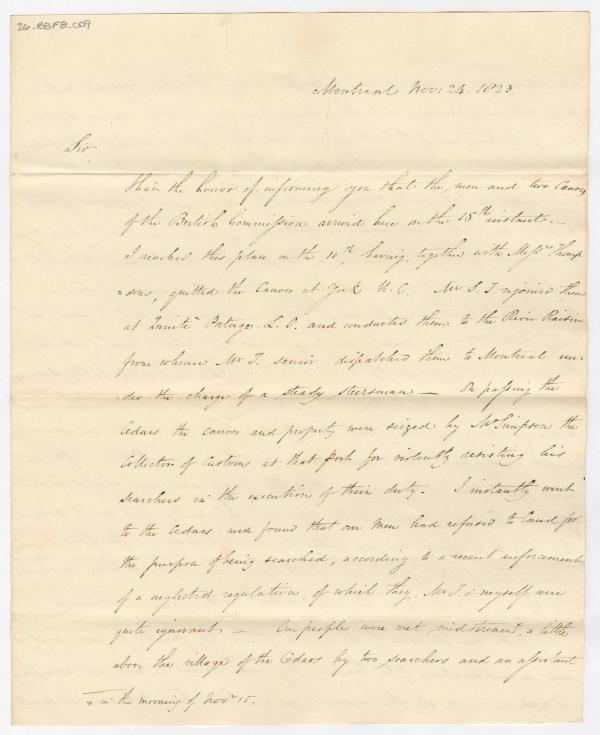 26-BBFB-009
Montreal Nov: 24. 1823.
Sir
I have the honor of informing you that the men and two Canoes
of the British Commission arrived here on the 18th instant. –
I reached this place on the 10th, having, together with Messrs Thomp
=sons, quitted the Canoes at York U. C. Mr S. T. rejoined them
at Quinté Portage L. O. and conducted them to the River Raisin
from whence Mr T. senior dispatched them to Montreal un-
der the charge of a steady steersman — On passing the
Cedars the canoes and property were seized by Mr Simpson the
Collector of Customs at that Port for violently resisting his
searchers in the execution of their duty. – I instantly went
to the Cedars and found that our Men had refused to land for
the purpose of being searched, according to a recent enforcement
of a neglected regulation, of which they, Mr T. & myself were
quite ignorant — Our people were met midstream, a little
above the village of the Cedars by two searchers and an assistant
x in the morning of Novr 15.